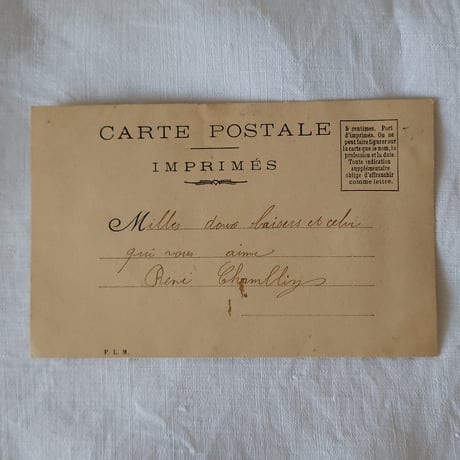 CARTE POSTALE
IMPRIMÉS
5 centimes. Port
d'imprimés. On ne
peut faire figurer sur
la carte que le nom, la
profession et la date.
Toute indication
supplémentaire
oblige d'affranchir
comme lettre.
Milles doux baisers et celui
qui vous aime
René
P. L. M.